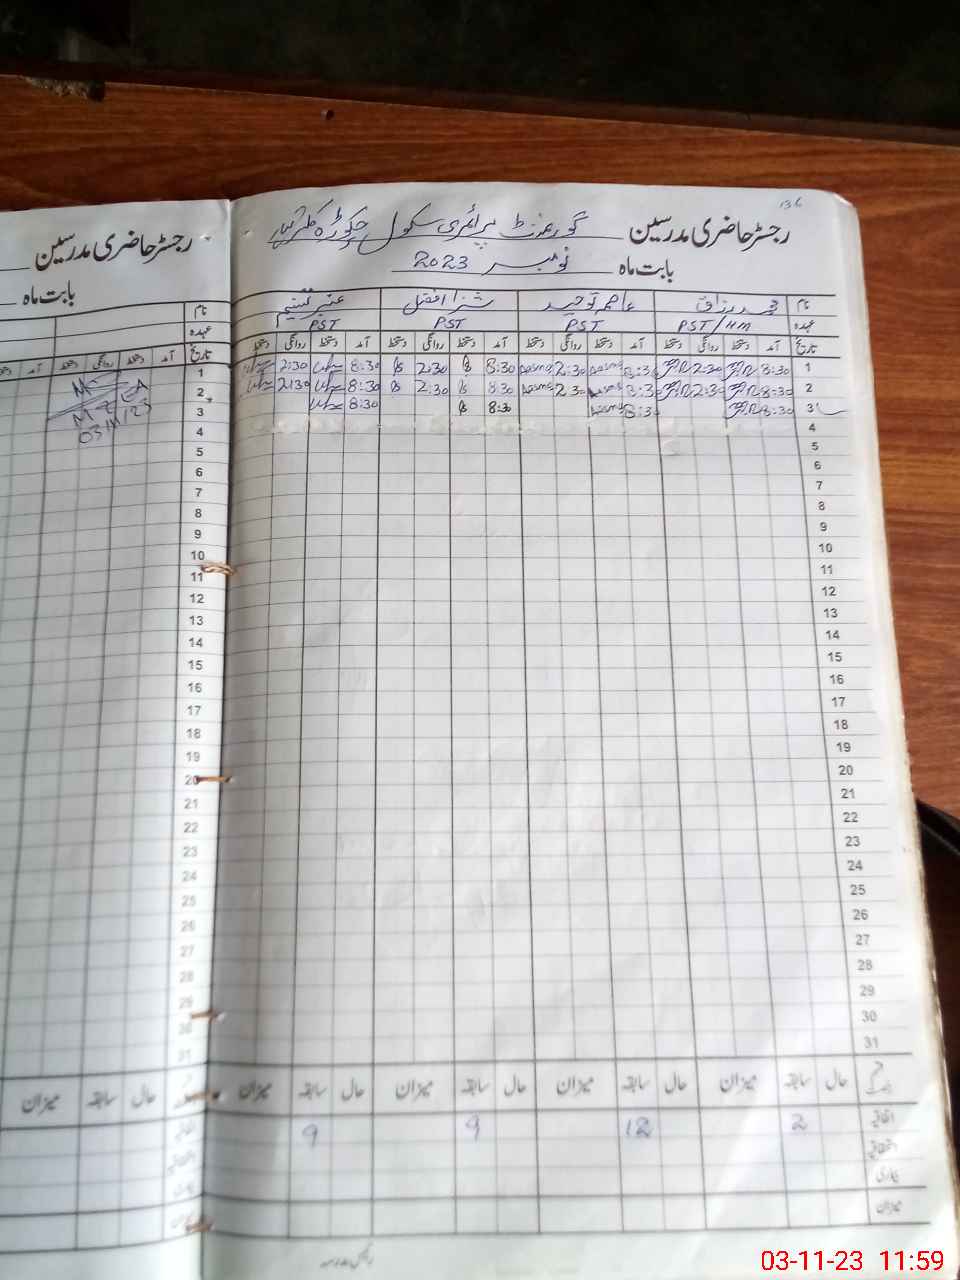 136
رجسٹر حاضری مدرسین گورنمنٹ پرائمری سکول چکوڑہ
بابت ماہ نومبر 2023
نام محمد رزاق عاصمہ توحید شزا افضل عنبر تبسم
عہدہ PST/HM PST PST PST
تاریخ آمد دستخط روانگی دستخط آمد دستخط روانگی دستخط آمد دستخط روانگی دستخط آمد دستخط روانگی دستخط
1 8:30 2:30 8:30 Aasma 2:30 Aasma 8:30 2:30 8:30 2:30
2 8:30 2:30 8:30 Aasma 2:30 Aasma 8:30 2:30 8:30 2:30
3 8:30 8:30 Aasma 8:30 8:30
4
5
6
7
8
9
10
11
12
13
14
15
16
17
18
19
20
21
22
23
24
25
26
27
28
29
30
31
حال سابقہ میزان حال سابقہ میزان حال سابقہ میزان حال سابقہ میزان
اتفاقیہ 2 12 9 9
بیماری
میزان
رجسٹر حاضری مدرسین
بابت ماہ
نام
عہدہ
تاریخ آمد دستخط روانگی دستخط آمد دستخط
1
2
3
03/11/23
4
5
6
7
8
9
10
11
12
13
14
15
16
17
18
19
20
21
22
23
24
25
26
27
28
29
30
31
حال سابقہ میزان
03-11-23 11:59